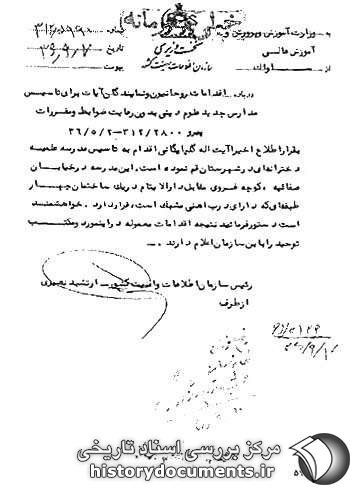 خیلی محرمانه
به وزارت آموزش و پرورش و
آموزش عالی
از ساواک
نخست وزیری
سازمان اطلاعات و امنیت کشور
شماره
تاریخ
پیوست
درباره اقدامات روحانیون و نمایندگان آیات برای تاسیس
مدارس جدید علوم دینی بدون رعایت ضوابط و مقررات
پیرو ۳۱۲/۲۸۰۰-۳۶/۵/۲
برابر اطلاع اخیرا آیت اله گلپایگانی اقدام به تاسیس مدرسه علمیه
دخترانه‌ای در شهرستان قم نموده است. این مدرسه در خیابان
صفائیه کوچه فروی مقابل دارالایتام در یک ساختمان چهار
طبقه‌ای که دارای درب آهنی مشبک است، قرار دارد. خواهشمند
است دستور فرمائید نتیجه اقدامات معموله در اینمورد و مکتب
توحید را باین سازمان اعلام دارند.
رئیس سازمان اطلاعات و امنیت کشور. ارتشبد نصیری
از طرف
مرکز بررسی اسناد تاریخی
historydocuments.ir